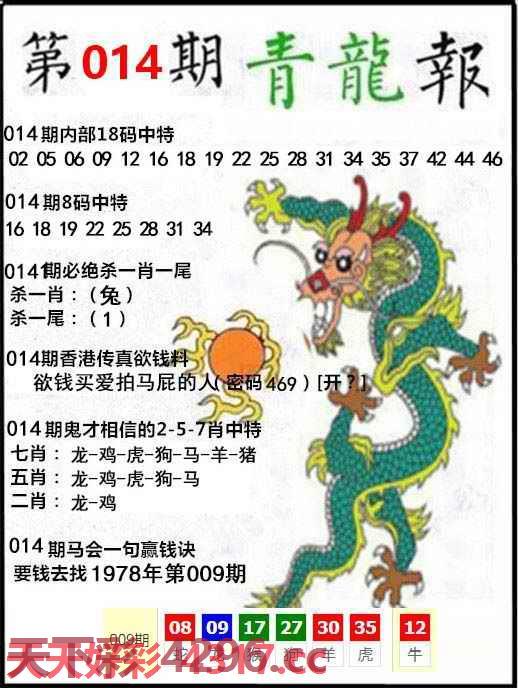 第014期青龍報
014期内部18码中特
02 05 06 09 12 16 18 19 22 25 28 31 34 35 37 42 44 46
014期8码中特
16 18 19 22 25 28 31 34
014期必绝杀一肖一尾
杀一肖：（兔）
杀一尾：（1）
014期香港传真欲钱料
欲钱买爱拍马屁的人（密码469）[开？]
014期鬼才相信的2-5-7肖中特
七肖：龙-鸡-虎-狗-马-羊-猪
五肖：龙-鸡-虎-狗-马
二肖：龙-鸡
014期马会一句赢钱诀
要钱去找1978年第009期
009期 08 09 17 27 30 35 12
蛇 龙 猴 狗 羊 虎 牛
天下好彩44397.cc